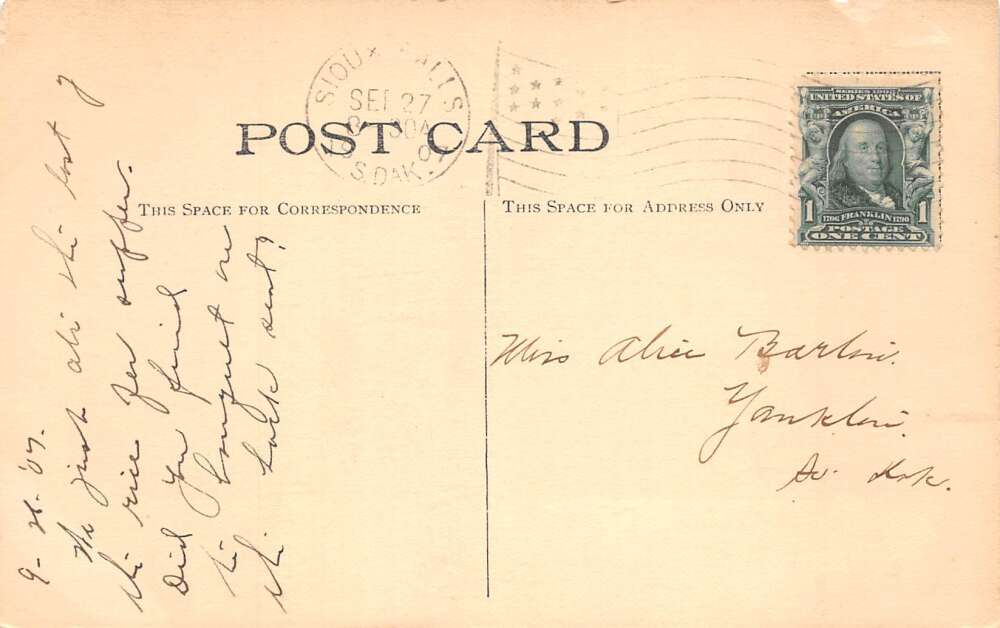 POST CARD
SIOUX FALLS
SEP 27
S. DAK.
THIS SPACE FOR CORRESPONDENCE
THIS SPACE FOR ADDRESS ONLY
SERIES 1902
UNITED STATES OF
AMERICA
1 1706 FRANKLIN 1790 1
POSTAGE
ONE CENT
9-26-'07.
We just ate the last of
the rice for supper.
Did you find
the bouquet on
the back seat?
Miss Alice Bartlin.
Yankton.
So Dak.